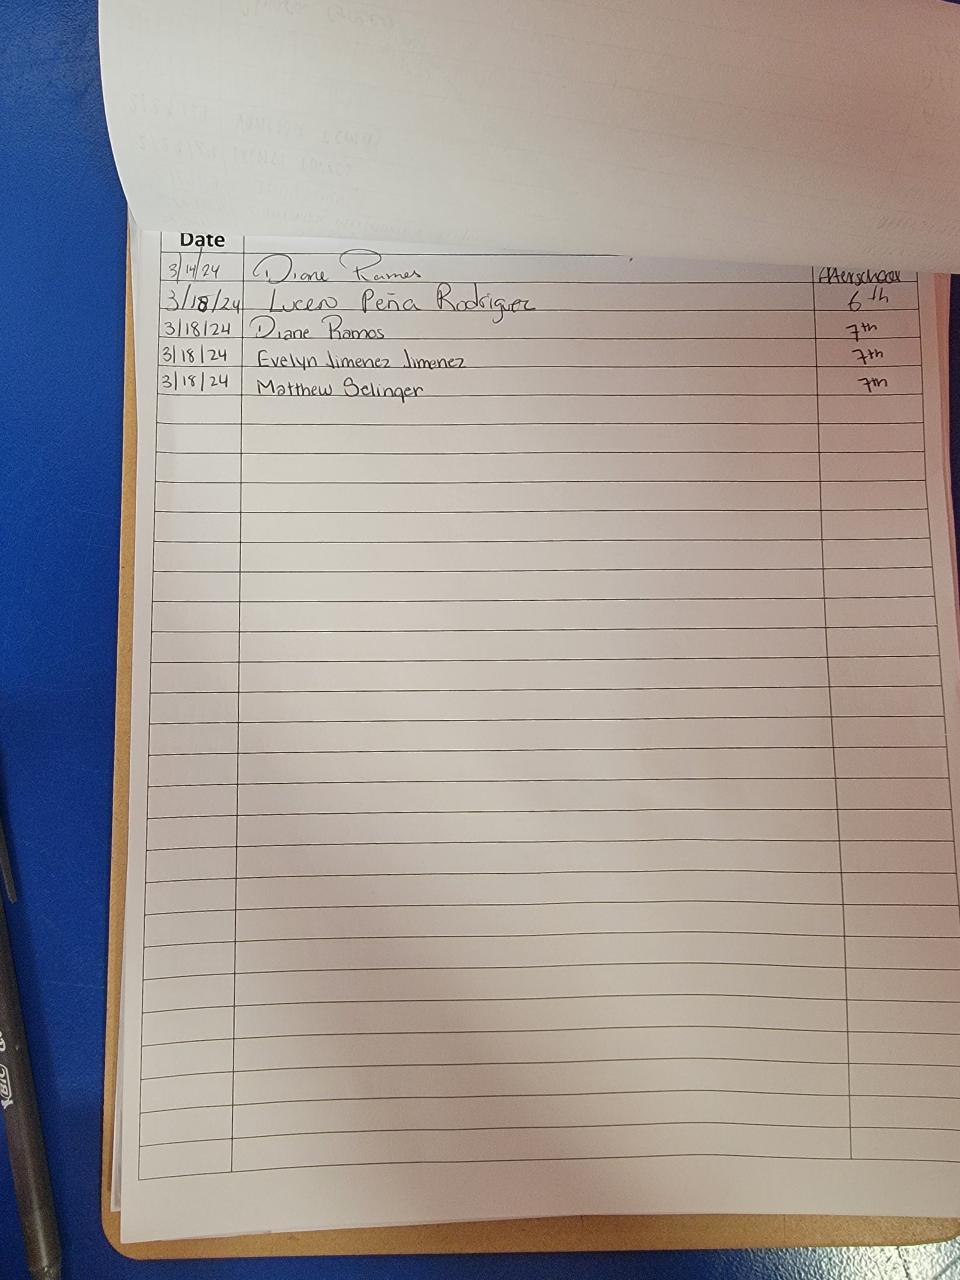 Date
3/14/24 Diane Ramos Afterschool
3/18/24 Lucero Peña Rodriguez 6th
3/18/24 Diane Ramos 7th
3/18/24 Evelyn Jimenez Jimenez 7th
3/18/24 Matthew Selinger 7th
BIC